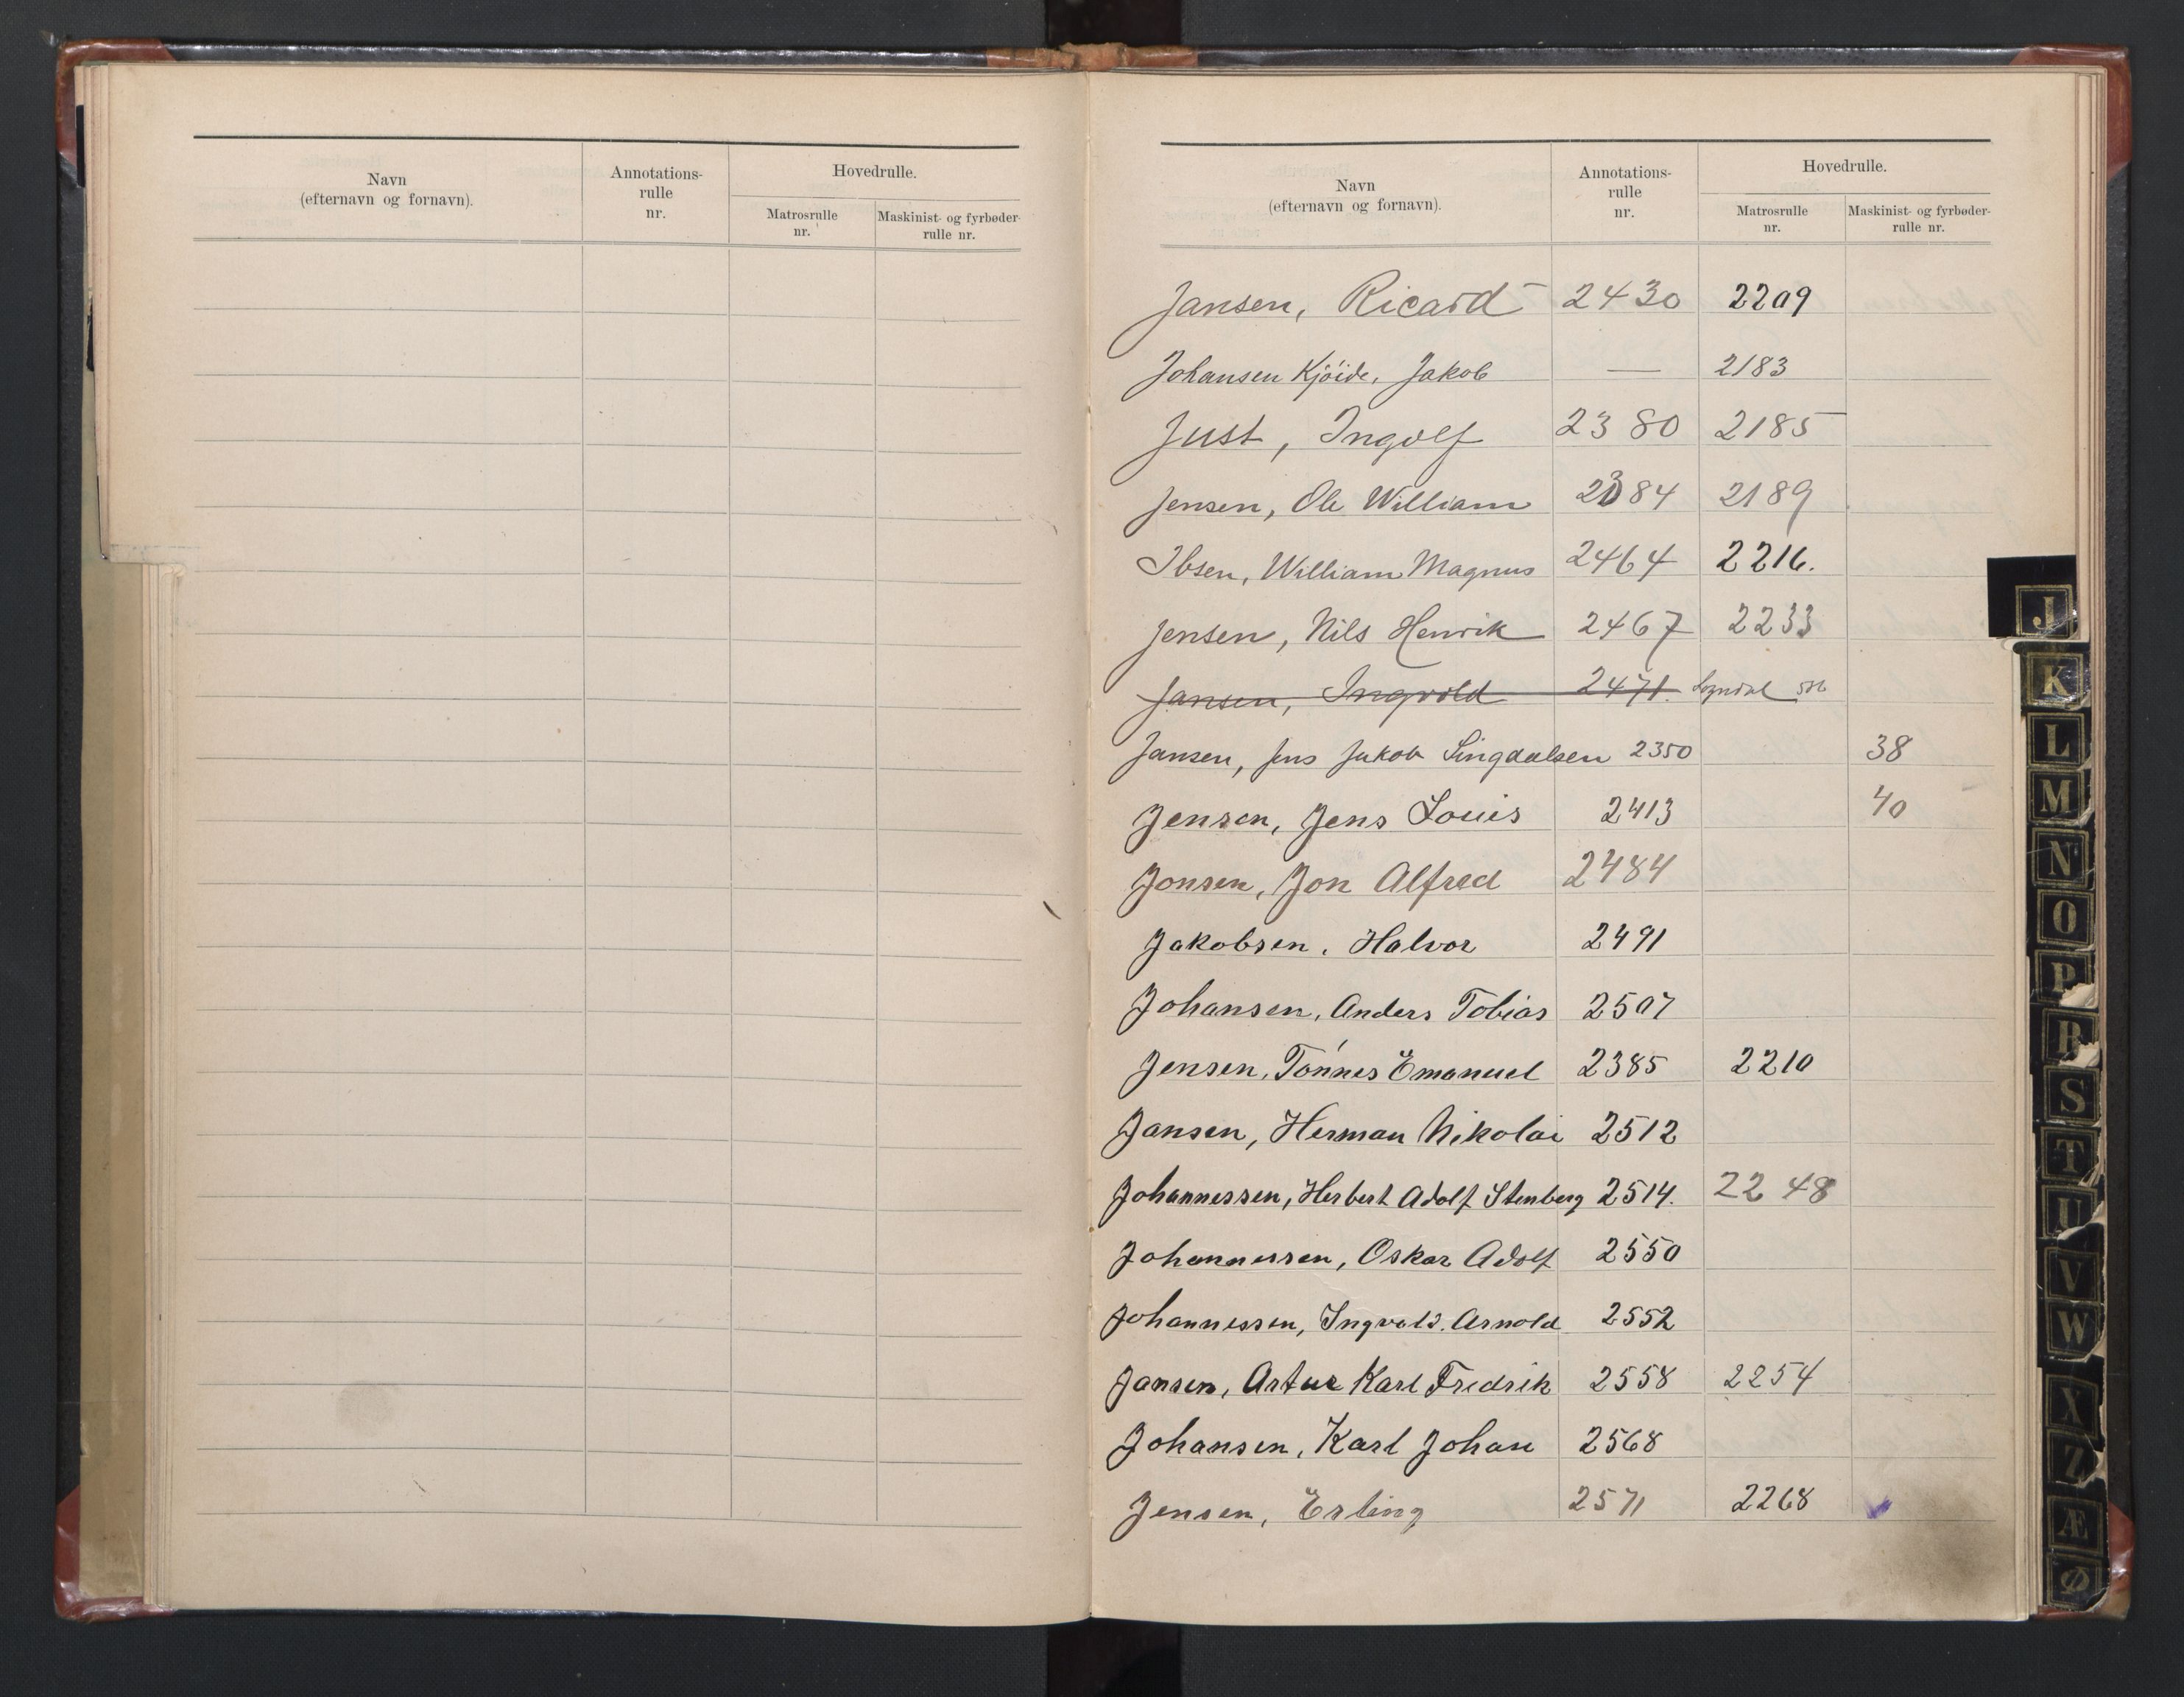 Navn
(efternavn og fornavn).
Annotations-
rulle
nr.
Hovedrulle.
Matrosrulle
nr.
Maskinist- og fyrbøder-
rulle nr.
Navn
(efternavn og fornavn).
Annotations-
rulle
nr.
Hovedrulle.
Matrosrulle
nr.
Maskinist- og fyrbøder-
rulle nr.
Jansen, Ricard 2430 2209
Johansen Kjöide, Jakob — 2183
Just, Ingolf 2380 2185
Jensen, Ole William 2384 2189
Ibsen, William Magnus 2464 2216.
Jensen, Nils Henrik 2467 2233
Jansen, Ingvold 2471. Sogndal
Jansen, Jens Jakob Lingaalsen 2350 38
Jensen, Jens Louis 2413 40
Jonsen, Jon Alfred 2484
Jakobsen, Halvor 2491
Johansen, Anders Tobias 2507
Jensen, Tönnes Emanuel 2385 2210
Jansen, Herman Nikolai 2512
Johannessen, Herbert Adolf Stenberg 2514. 2248
Johannessen, Oskar Adolf 2550
Johannessen, Ingvald. Arnold 2552
Jansen, Artur Karl Fredrik 2558 2254
Johansen, Karl Johan 2568
Jensen, Erling 2571 2268
J
K
L
M
N
O
P
R
S
T
U
V
W
X
Z
Æ
Ø